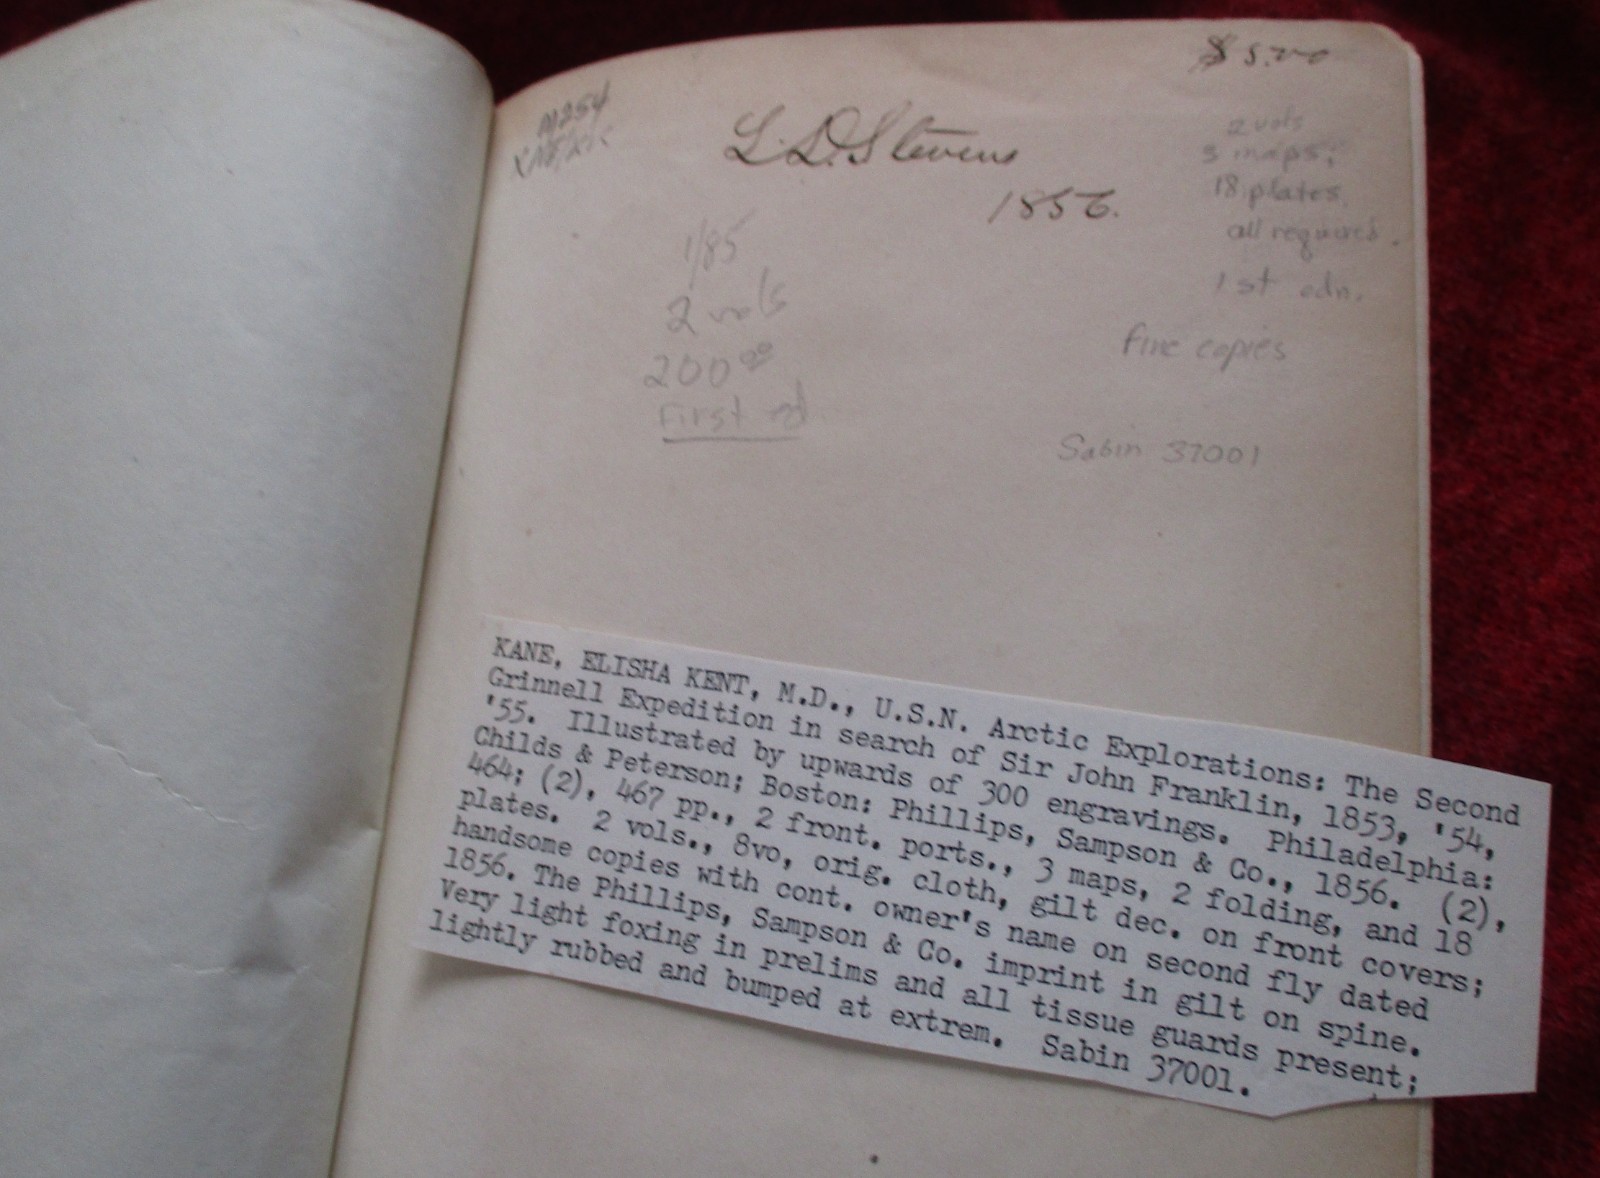 $ 5.00
M254
L. D. Stevens
1856.
2 vols
3 maps,
18 plates,
all required.
1st edn.
1/85
2 vols
200.00
First ed.
fine copies
Sabin 37001
KANE, ELISHA KENT, M.D., U.S.N. Arctic Explorations: The Second
Grinnell Expedition in search of Sir John Franklin, 1853, '54,
'55. Illustrated by upwards of 300 engravings. Philadelphia:
Childs & Peterson; Boston: Phillips, Sampson & Co., 1856. (2),
464; (2), 467 pp., 2 front. ports., 3 maps, 2 folding, and 18
plates. 2 vols., 8vo, orig. cloth, gilt dec. on front covers;
handsome copies with cont. owner's name on second fly dated
1856. The Phillips, Sampson & Co. imprint in gilt on spine.
Very light foxing in prelims and all tissue guards present;
lightly rubbed and bumped at extrem. Sabin 37001.